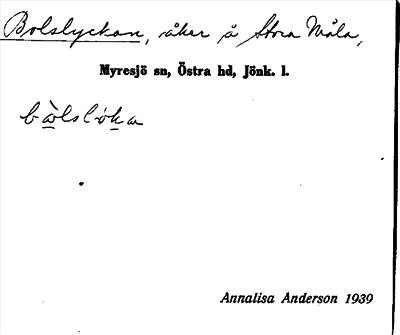 Bolslyckan, åker å Stora Måla,
Myresjö sn, Östra hd, Jönk. l.
Annalisa Anderson 1939